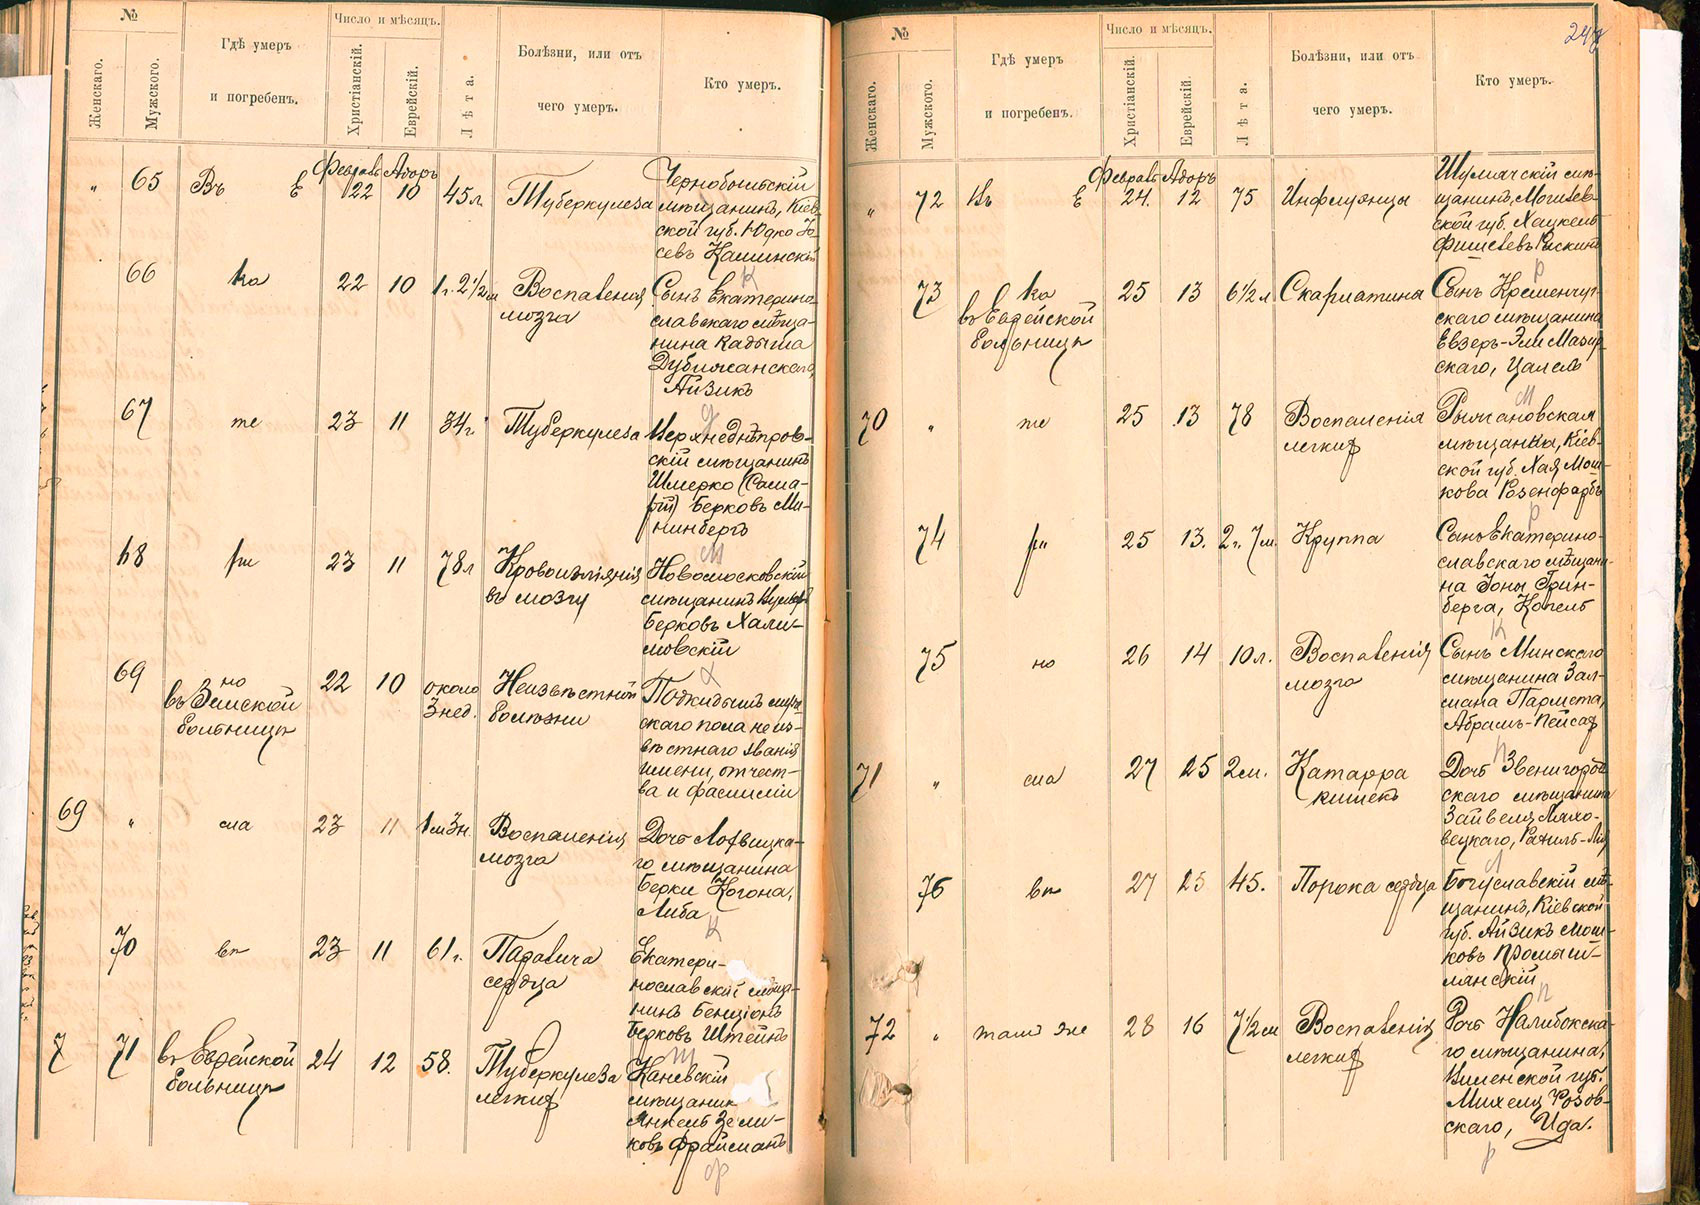 №
Женскаго.
Мужского.
Гдѣ умеръ
и погребенъ.
Число и мѣсяцъ.
Христіанскій.
Еврейскій.
Лѣта.
Болѣзни, или отъ
чего умеръ.
Кто умеръ.
Февраль Адоръ
" 65 Въ Е 22 10 45 л. Туберкулеза
Чернобыльскій
мѣщанинъ, Кіев-
ской губ. Юдко Іо-
севъ Кашинскій
к
66 ка 22 10 1 г. 2½ м Воспаленія
мозга
Сынъ Екатерино-
славскаго мѣща-
нина Кадыша
Дубинскаго,
Айзикъ
д
67 те 23 11 34 г. Туберкулеза
Верхнеднѣпров-
скій мѣщанинъ
Шмерко
Берковъ Ми-
нинбергъ
м
68 ри 23 11 78 л Кровоизліянія
въ мозгу
Новомосковскій
мѣщанинъ
Берковъ Хали-
мовскій
х
69 но
въ Земской
больницѣ
22 10 около
3 нед.
Неизвѣстной
болѣзни
Подкидышъ муж-
скаго пола неиз-
вѣстнаго званія
имени, отчест-
ва и фамиліи
69 " сла 23 11 1 м 3 н. Воспаленія
мозга
Дочь Лохвицка-
го мѣщанина
Берки Когона,
Либа
к
70 вѣ 23 11 61 г. Паралича
сердца
Екатери-
нославскій мѣща-
нинъ Бенціонъ
Берковъ Штейнъ
ш
71 въ Еврейской
больницѣ
24 12 58. Туберкулеза
легкихъ
Каневскій
мѣщанин
Янкель Зели-
ковъ Фрайманъ
ф
247
№
Женскаго.
Мужского.
Гдѣ умеръ
и погребенъ.
Число и мѣсяцъ.
Христіанскій.
Еврейскій.
Лѣта.
Болѣзни, или отъ
чего умеръ.
Кто умеръ.
Февраль Адоръ
" 72 Въ Е 24. 12 75 Инфлуэнцы
Шумячскій мѣ-
щанинъ, Могилев-
ской губ. Хацкель
Фишелевъ Рискинъ
р
73 ка
въ Еврейской
больницѣ
25 13 6½ л Скарлатина
Сынъ Кременчуг-
скаго мѣщанина
Евзеръ-Эли Мазур-
скаго, Цалель
м
70 " те 25 13 78 Воспаленія
легкихъ
мѣщанка, Кіев-
ской губ. Хая Мош-
кова Розенфарбъ
р
74 ри 25 13. 2 г. 7 м. Круппа
Сынъ Екатерино-
славскаго мѣщани-
на Іоны Грин-
берга, Копель
75 но 26 14 10 л. Воспаленія
мозга
Сынъ Минскаго
мѣщанина Зал-
мана
Абрамъ-Пейсахъ
п
71 " сла 27 25 2 м. Катарра
кишекъ
Дочь Звенигород-
скаго мѣщанина
Зайвеля Ляхо-
вецкаго, Рахиль-Лія
л
76 вѣ 27 25 45. Порока сердца
Богуславскій мѣ-
щанинъ, Кіевской
губ. Айзикъ Мош-
ковъ Промыш-
лянскій
п
72 " тамъ же 28 16 7½ м Воспаленія
легкихъ
Дочь Налибокска-
го мѣщанина,
Виленской губ.
Михеля Розов-
скаго, Ида.
р